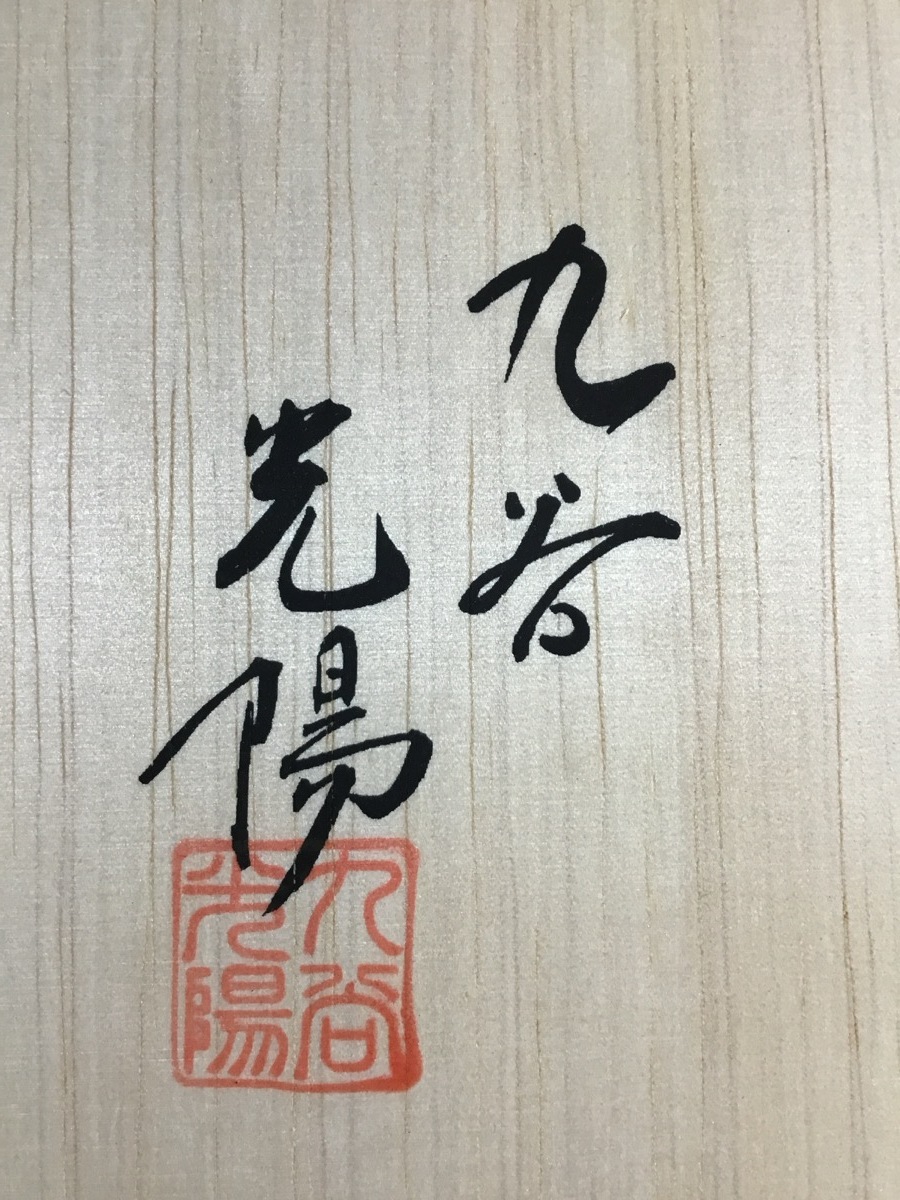 九谷
光陽
九谷
光陽